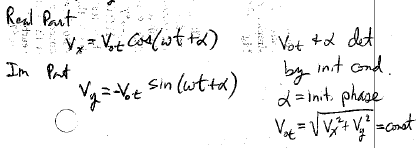 Real Part
Vx = Vot cos(ωt+α)
Im Part
Vy = -Vot sin(ωt+α)
Vot + α det
by init cond.
α = init. phase
Vot = √Vx² + Vy² = const